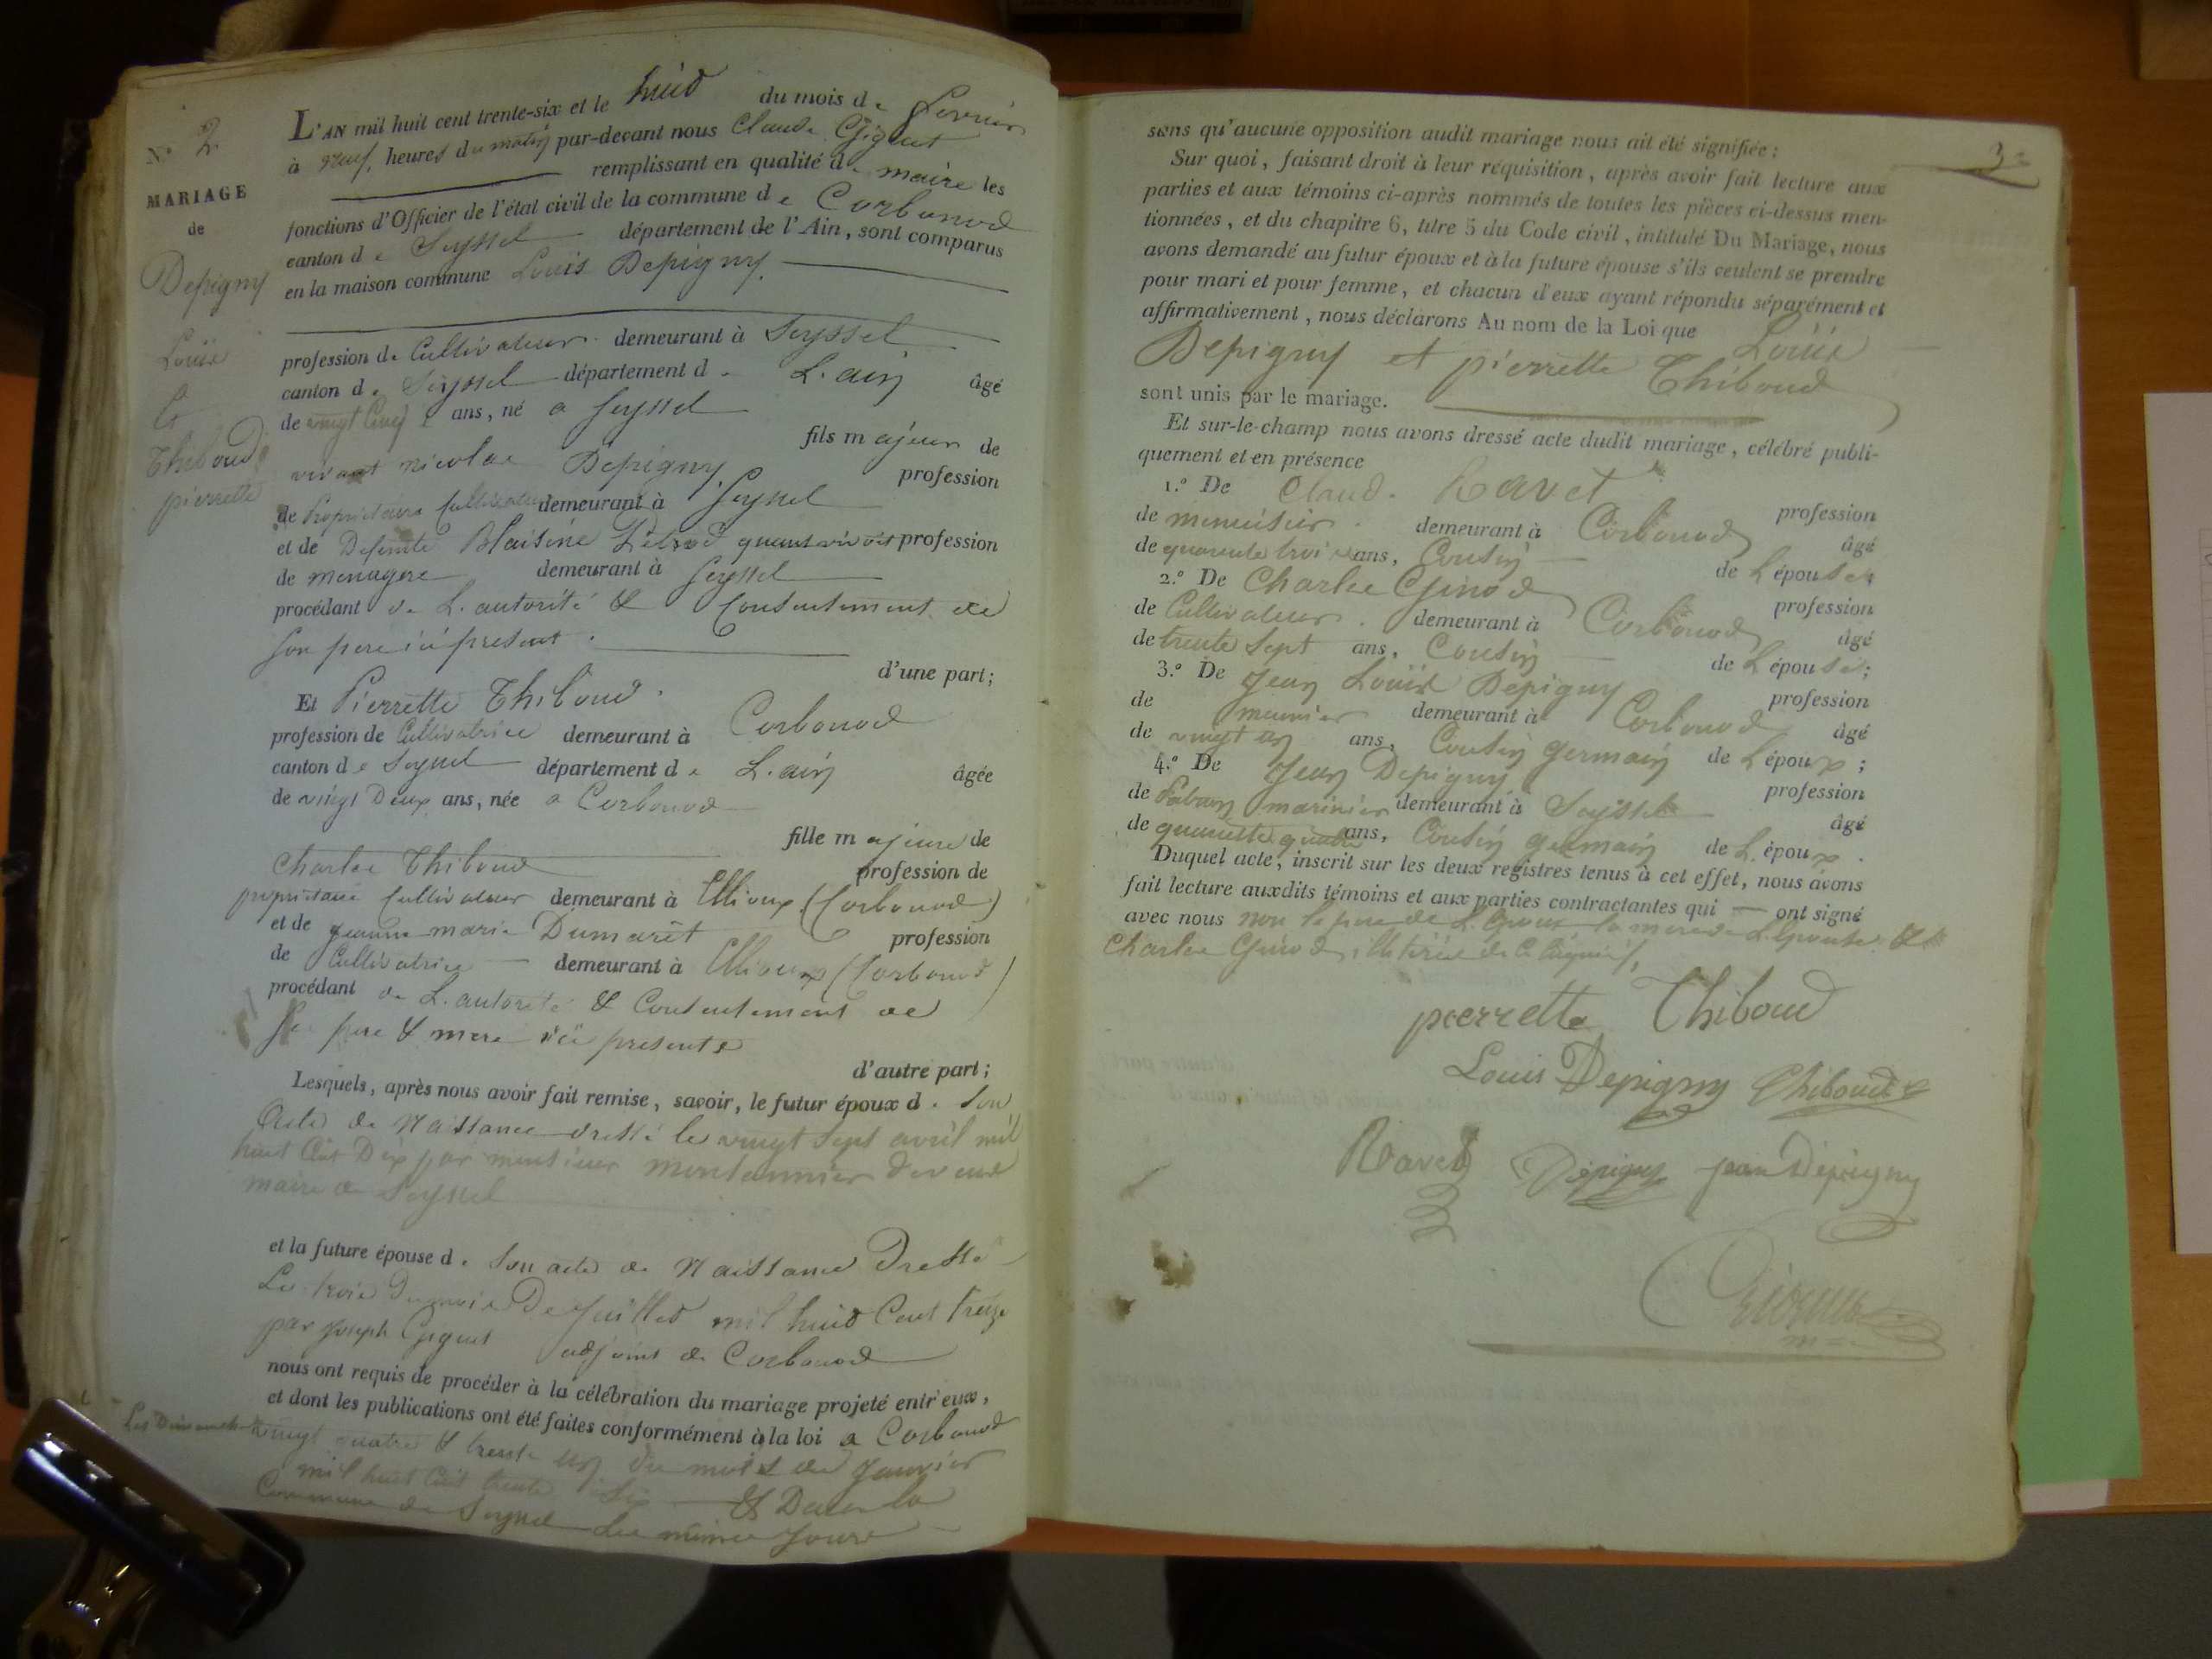 N.° 2
MARIAGE
de
Depigny
Louis
et
Thiboud
pierrette
L'AN mil huit cent trente-six et le huit du mois de fevrier
à neuf heures du matin par-devant nous Claude Gignet
remplissant en qualité de maire les
fonctions d'Officier de l'état civil de la commune de Corbonod
canton de Seyssel département de l'Ain, sont comparus
en la maison commune Louis Depigny
profession de Cultivateur demeurant à Seyssel
canton de Seyssel département de L'ain âgé
de vingt Cinq ans, né a Seyssel
fils majeur de
vivant nicolas Depigny profession
de Proprietaire Cultivateur demeurant à Seyssel
et de Defunte Blaisine quant vivoit profession
de menagere demeurant à Seyssel
procédant de L'autorité & Consentement de
son pere ici present
d'une part;
Et Pierrette Thiboud
profession de Cultivatrice demeurant à Corbonod
canton de Seyssel département de L'ain âgée
de vingt Deux ans, née a Corbonod
fille majeure de
Charles Thiboud profession de
proprietaire Cultivateur demeurant à (Corbonod)
et de Jeanne marie Dumarêt profession
de Cultivatrice demeurant à (Corbonod)
procédant de L'autorité & Consentement de
ses pere & mere ici presents
d'autre part;
Lesquels, après nous avoir fait remise, savoir, le futur époux de Son
acte de Naissance dressé le vingt Sept avril mil
huit Cent Dix par monsieur montannier
maire de Seyssel
et la future épouse de Son acte de Naissance Dressé
Le trois Du mois De Juillet mil huit Cent treize
par Joseph Gignet adjoint de Corbonod
nous ont requis de procéder à la célébration du mariage projeté entr'eux,
et dont les publications ont été faites conformément à la loi a Corbonod
Les Dimanches vingt quatre & trente un du mois de Janvier
mil huit Cent trente Six & Dans la
Commune de Seyssel Les mêmes Jours
3
sans qu'aucune opposition audit mariage nous ait été signifiée;
Sur quoi, faisant droit à leur réquisition, après avoir fait lecture aux
parties et aux témoins ci-après nommés de toutes les pièces ci-dessus men-
tionnées, et du chapitre 6, titre 5 du Code civil, intitulé Du Mariage, nous
avons demandé au futur époux et à la future épouse s'ils veulent se prendre
pour mari et pour femme, et chacun d'eux ayant répondu séparément et
affirmativement, nous déclarons Au nom de la Loi que Louis
Depigny et pierrette Thiboud
sont unis par le mariage.
Et sur-le-champ nous avons dressé acte dudit mariage, célébré publi-
quement et en présence
1.° De Claude Ravet profession
de menuisier demeurant à Corbonod âgé
de quarante trois ans, Cousin de L'épouse;
2.° De Charles Ginod profession
de Cultivateur demeurant à Corbonod âgé
de trente Sept ans, Cousin de L'épouse;
3.° De Jean Louis Depigny profession
de meunier demeurant à Corbonod âgé
de vingt un ans, Cousin germain de L'époux;
4.° De Jean Depigny profession
de Patron marinier demeurant à Seyssel âgé
de quarante quatre ans, Cousin germain de L'époux.
Duquel acte, inscrit sur les deux registres tenus à cet effet, nous avons
fait lecture auxdits témoins et aux parties contractantes qui ont signé
avec nous non le pere de L'époux, la mere de L'épouse &
Charles Ginod, illiterés de ce enquis
pierrette Thiboud
Louis Depigny Thiboud
Ravet Depigny jean Depigny